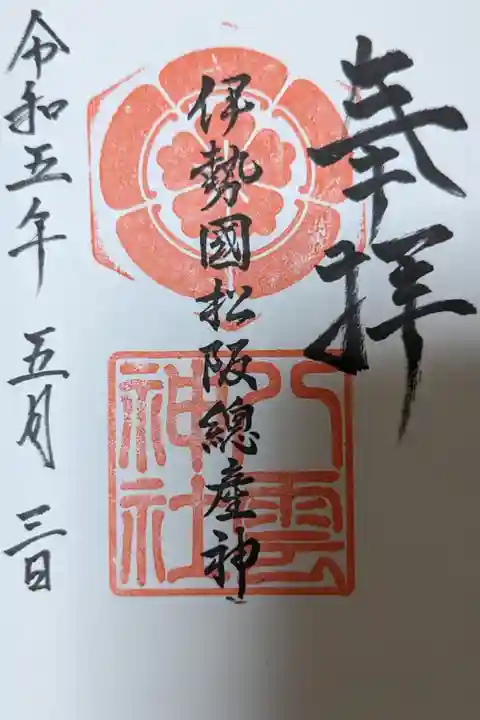 奉拝
伊勢國松阪總産神
八雲神社
令和五年 五月 三日